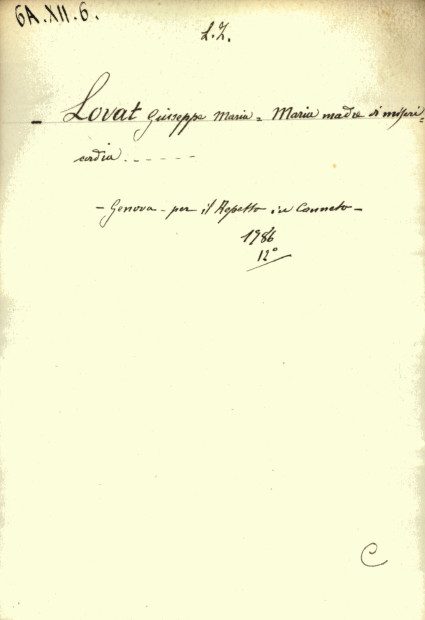 6A.XII.6.
L.Z.
- Lovat Giuseppe Maria = Maria madre di miseri=
cordia - - - - - -
- Genova - per il Repetto in Canneto -
1786
12°
C